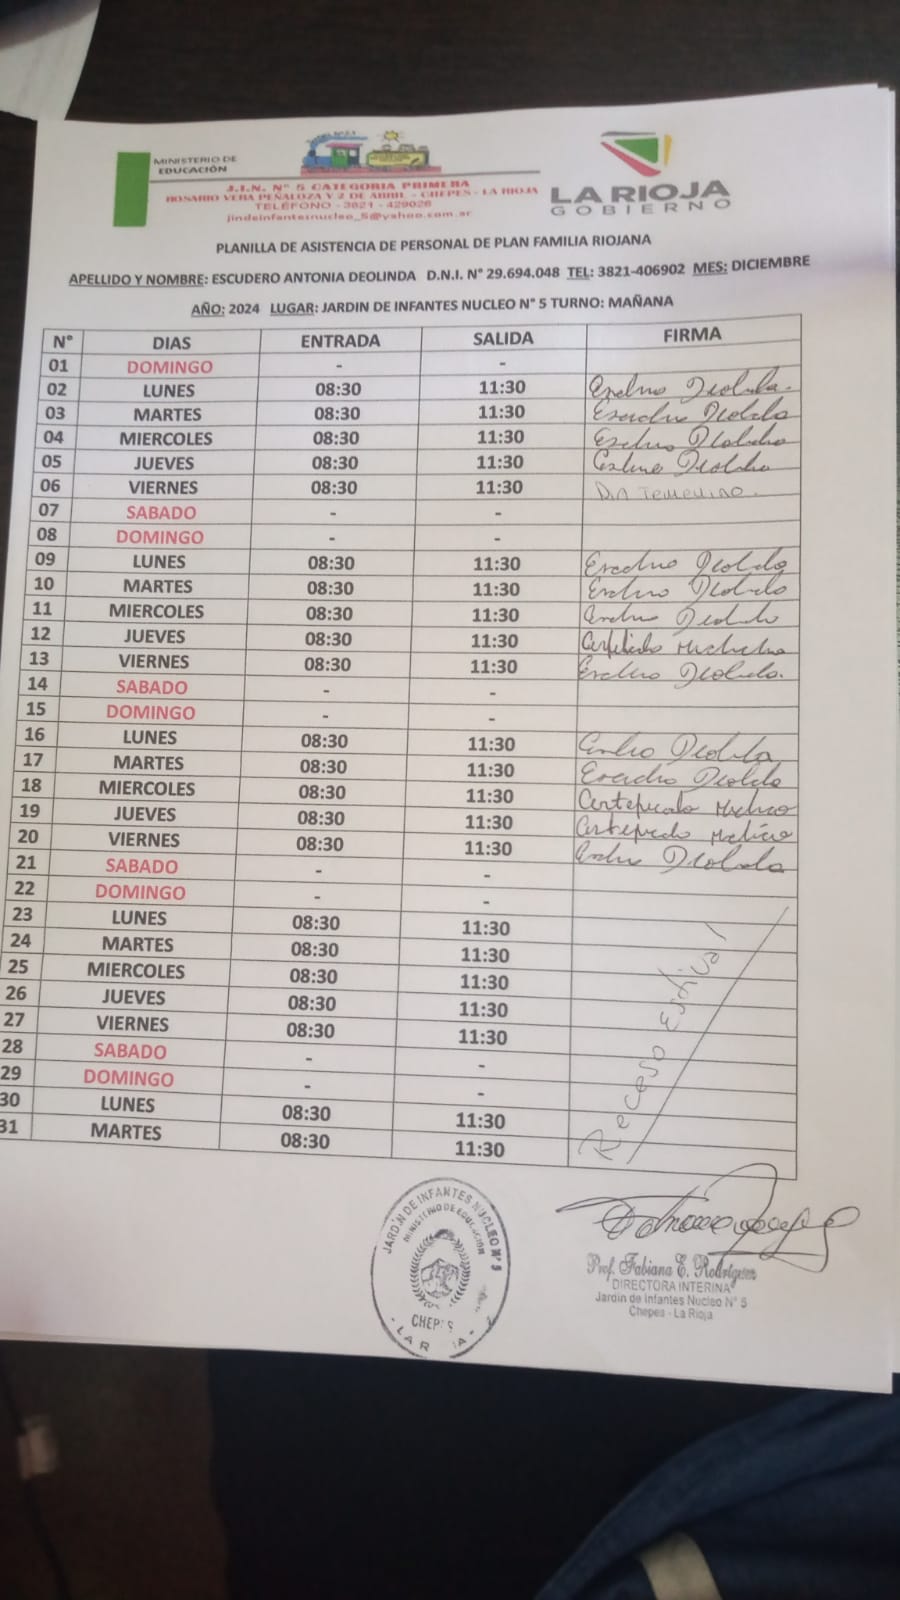 MINISTERIO DE
EDUCACIÓN
J.I.N. N° 5 CATEGORIA PRIMERA
ROSARIO VERA PEÑALOZA Y 2 DE ABRIL - CHEPES - LA RIOJA
TELÉFONO - 3821 - 429026
jindeinfantesnucleo_5@yahoo.com.ar
LA RIOJA
GOBIERNO
PLANILLA DE ASISTENCIA DE PERSONAL DE PLAN FAMILIA RIOJANA
APELLIDO Y NOMBRE: ESCUDERO ANTONIA DEOLINDA D.N.I. N° 29.694.048 TEL: 3821-406902 MES: DICIEMBRE
AÑO: 2024 LUGAR: JARDIN DE INFANTES NUCLEO N° 5 TURNO: MAÑANA
N° DIAS ENTRADA SALIDA FIRMA
01 DOMINGO - -
02 LUNES 08:30 11:30
03 MARTES 08:30 11:30
04 MIERCOLES 08:30 11:30
05 JUEVES 08:30 11:30
06 VIERNES 08:30 11:30
07 SABADO - -
08 DOMINGO - -
09 LUNES 08:30 11:30
10 MARTES 08:30 11:30
11 MIERCOLES 08:30 11:30
12 JUEVES 08:30 11:30
13 VIERNES 08:30 11:30
14 SABADO - -
15 DOMINGO - -
16 LUNES 08:30 11:30
17 MARTES 08:30 11:30
18 MIERCOLES 08:30 11:30
19 JUEVES 08:30 11:30
20 VIERNES 08:30 11:30
21 SABADO - -
22 DOMINGO - -
23 LUNES 08:30 11:30
24 MARTES 08:30 11:30
25 MIERCOLES 08:30 11:30
26 JUEVES 08:30 11:30
27 VIERNES 08:30 11:30
28 SABADO - -
29 DOMINGO - -
30 LUNES 08:30 11:30
31 MARTES 08:30 11:30
Receso Estival
JARDIN DE INFANTES NUCLEO N° 5
MINISTERIO DE EDUCACION
CHEPES
Prof. Fabiana E. Rodriguez
DIRECTORA INTERINA
Jardin de Infantes Nucleo N° 5
Chepes - La Rioja